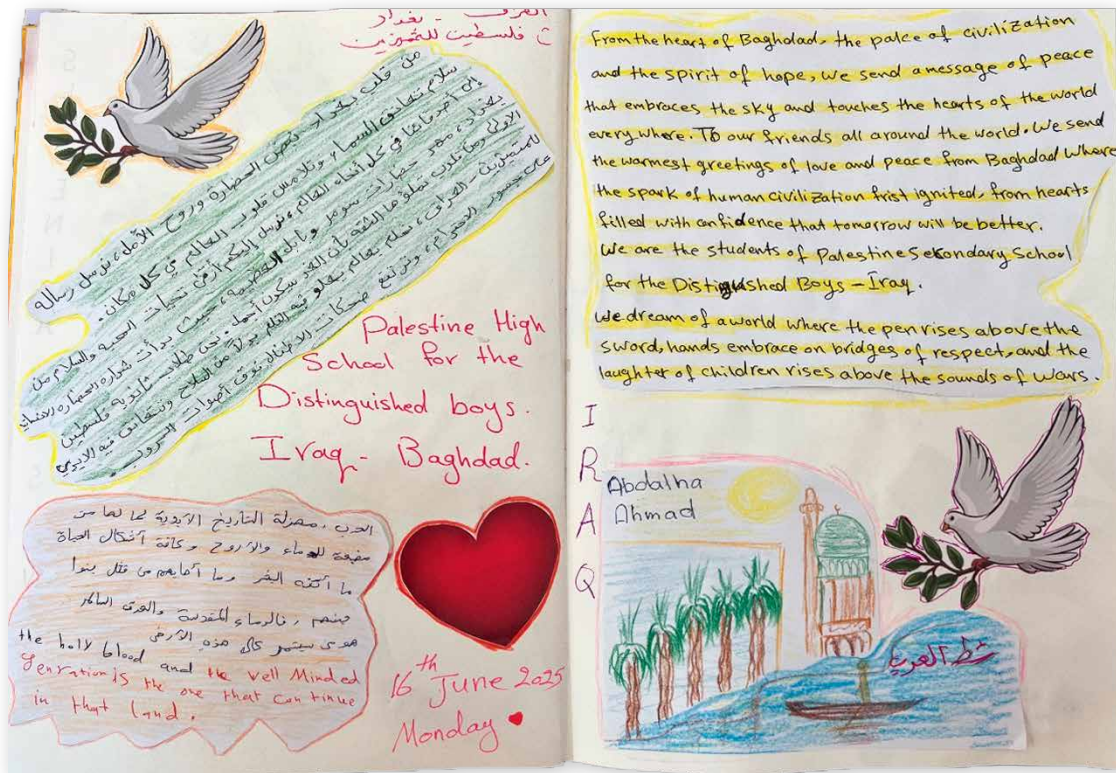 العراق - بغداد
فلسطين للمتميزين
من قلب بغداد، نبض الحضارة وروح الأمل، نرسل رسالة
سلام تعانق السماء، وتلامس قلوب العالم في كل مكان.
إلى أصدقائنا في كل أنحاء العالم، نرسل إليكم أرقى تحيات المحبة والسلام من
بغداد، مهد حضارات سومر وبابل العظيمة، حيث بدأت شرارة الحضارة الإنسانية
الأولى، ومن قلوب تملؤها الثقة بأن الغد سيكون أجمل. نحن طلاب ثانوية فلسطين
للمتميزين - العراق، نحلم بعالم يعلو فيه القلم بدلاً من السلاح وتتعانق فيه الأيدي
على جسور الاحترام، وترتفع ضحكات الأطفال فوق أصوات الحروب.
Palestine High
School for the
Distinguished boys.
Iraq - Baghdad.
الحرب، مهزلة التاريخ الأبدية لما لها من
مضيعة للدماء والأرواح وكافة أشكال الحياة
ما البشر وما أصابهم من قتل بنوا
جنسهم، فالدماء المقدسة والعرق
على هذه الأرض
the holly blood and the well Minded
genration is the one that can continue
in that land.
16th June 2025
Monday
From the heart of Baghdad, the palce of civilization
and the spirit of hope, we send a message of peace
that embraces the sky and touches the hearts of the world
every where. To our friends all around the world. We send
the warmest greetings of love and peace from Baghdad Where
the spark of human civilization frist ignited, from hearts
filled with confidence that tomorrow will be better.
We are the students of Palestine Sekondary School
for the Distiguished Boys - Iraq.
We dream of a world where the pen rises above the
sword, hands embrace on bridges of respect, and the
laughter of children rises above the sounds of wars.
IRAQ
Abdalha
Ahmad
شط العرب